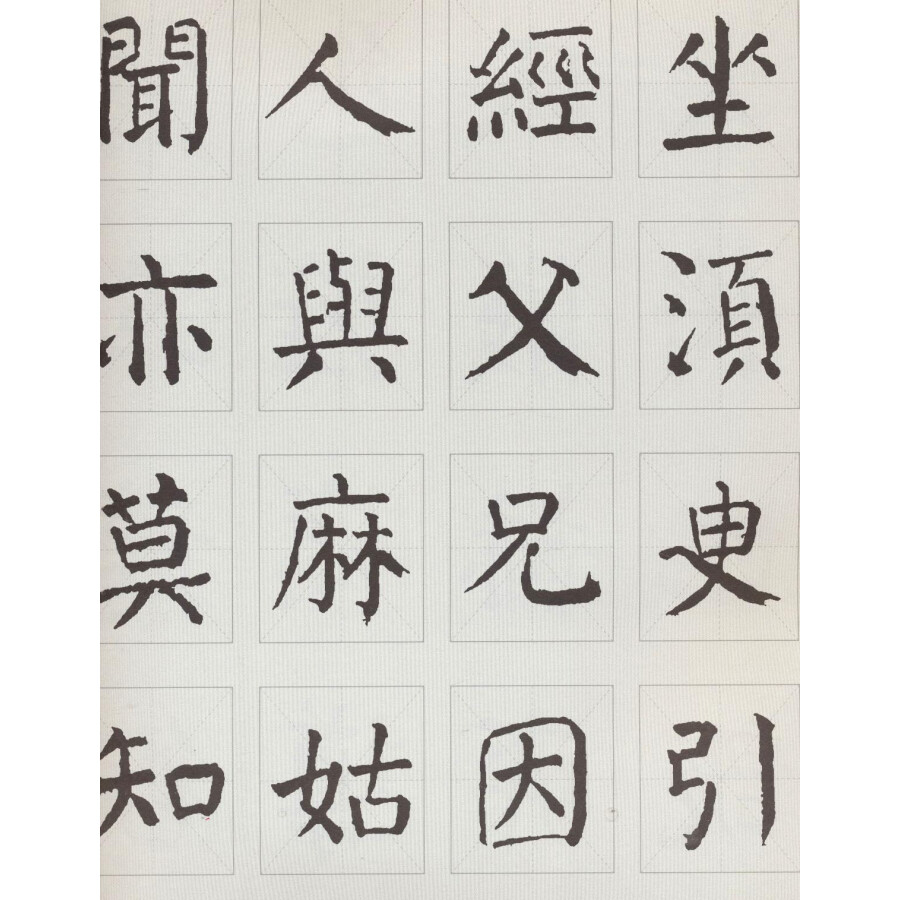 坐湏臾引
經父兄因
人與麻姑
聞亦莫知